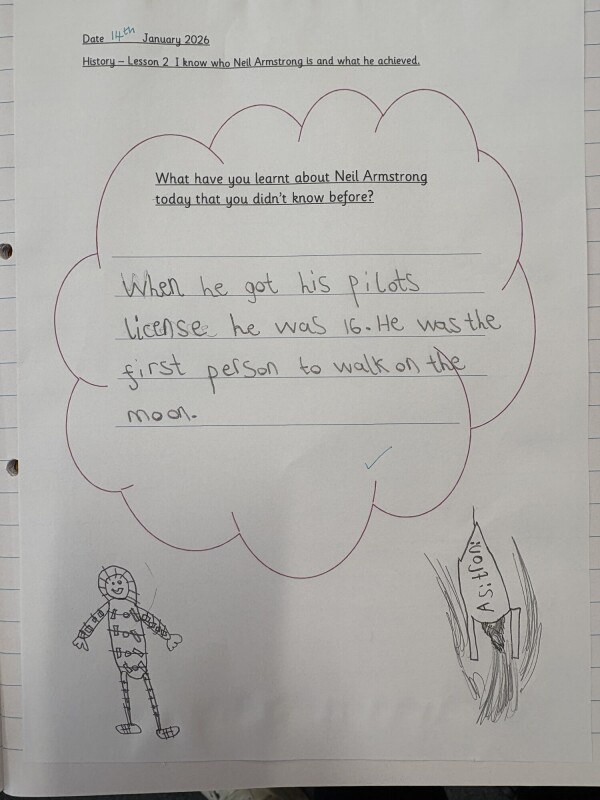 Date 14th January 2026
History – Lesson 2 I know who Neil Armstrong is and what he achieved.
What have you learnt about Neil Armstrong
today that you didn't know before?
When he got his pilots
license he was 16. He was the
first person to walk on the
moon.